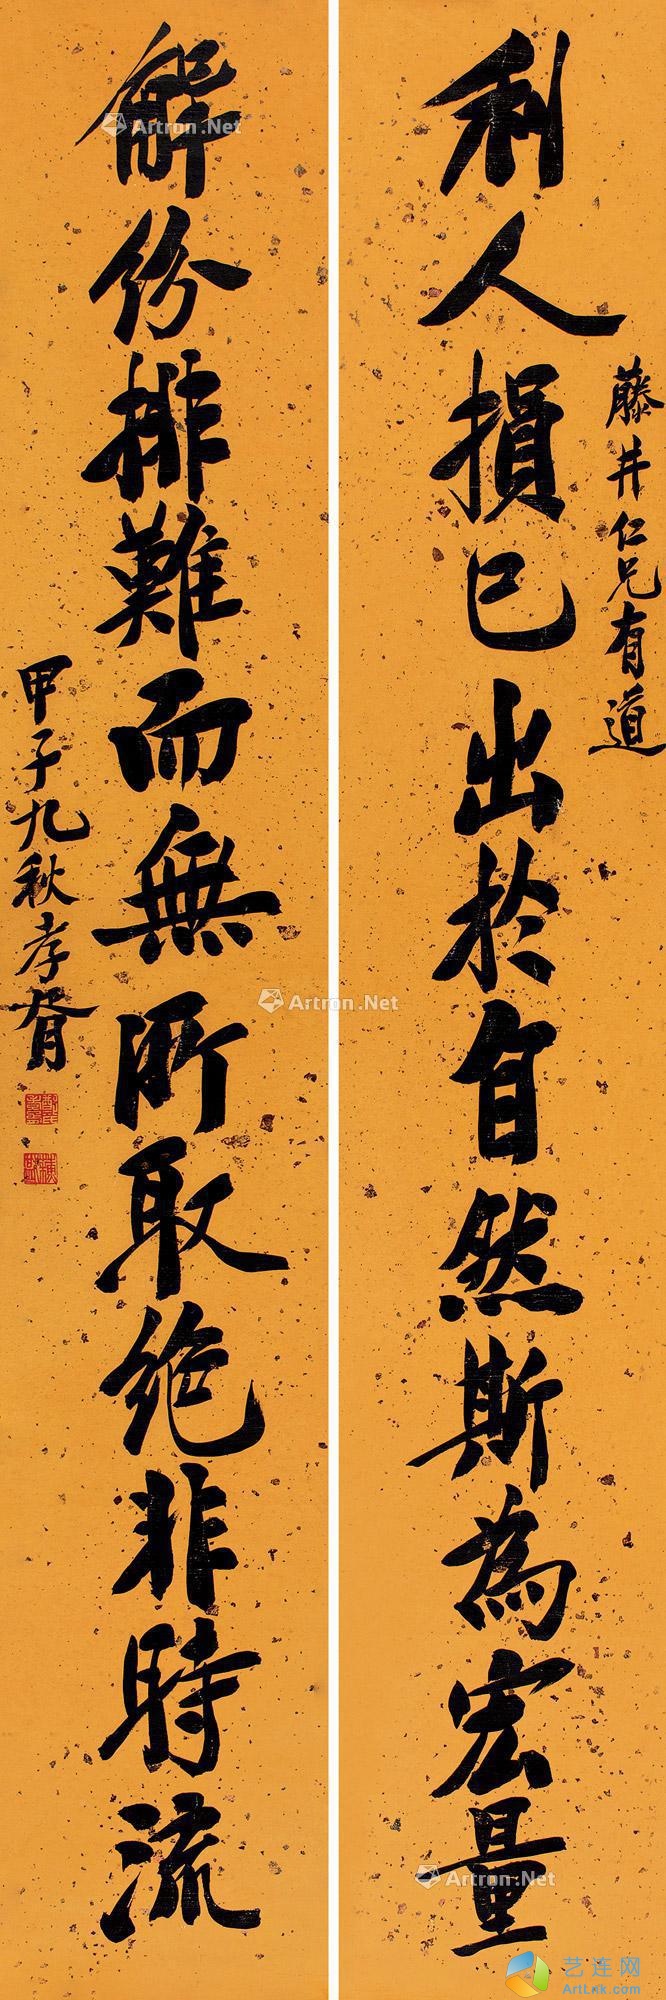 藤井仁兄有道
利人損己出於自然斯為宏量
解紛排難而無所取絕非時流
甲子九秋孝胥
Artron.Net
Artron.Net
Artron.Net
艺连网
ArtLnk.com